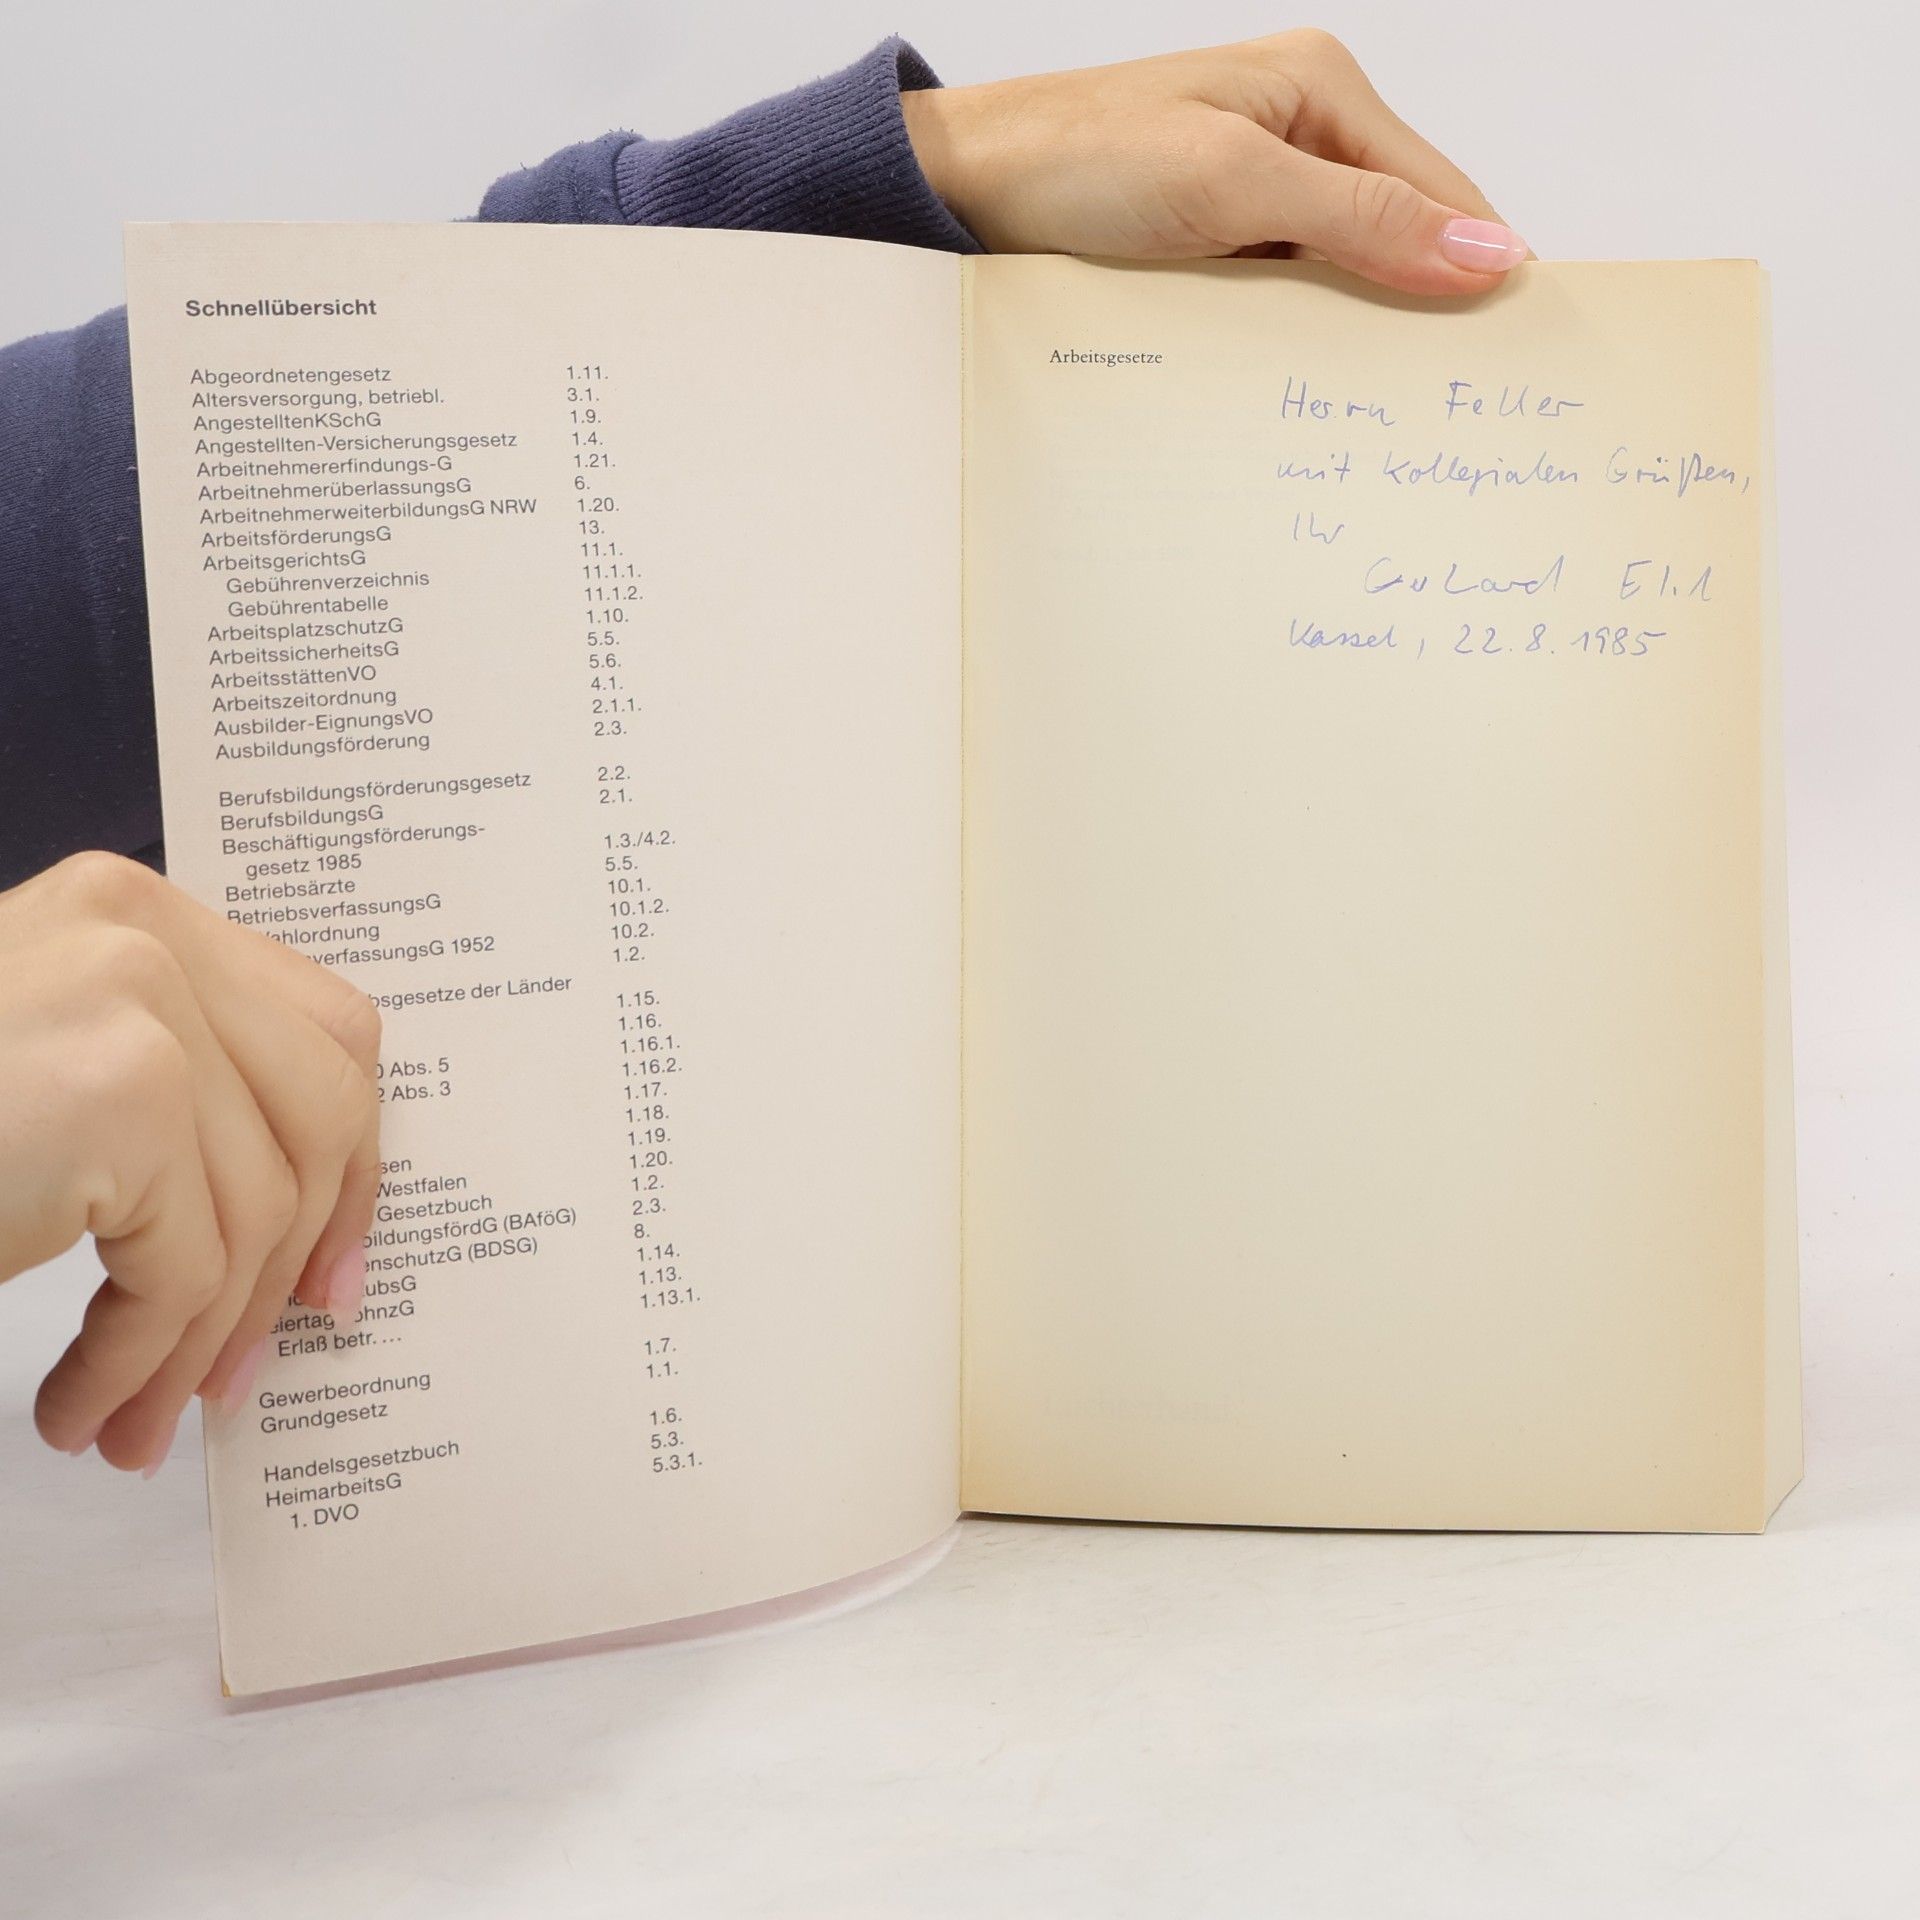 Schnellübersicht
Abgeordnetengesetz 1.11.
Altersversorgung, betriebl. 3.1.
AngestelltenKSchG 1.9.
Angestellten-Versicherungsgesetz 1.4.
Arbeitnehmererfindungs-G 1.21.
ArbeitnehmerüberlassungsG 6.
ArbeitnehmerweiterbildungsG NRW 1.20.
ArbeitsförderungsG 13.
ArbeitsgerichtsG 11.1.
Gebührenverzeichnis 11.1.1.
Gebührentabelle 11.1.2.
ArbeitsplatzschutzG 1.10.
ArbeitssicherheitsG 5.5.
ArbeitsstättenVO 5.6.
Arbeitszeitordnung 4.1.
Ausbilder-EignungsVO 2.1.1.
Ausbildungsförderung 2.3.
Berufsbildungsförderungsgesetz 2.2.
BerufsbildungsG 2.1.
Beschäftigungsförderungs-
gesetz 1985 1.3./4.2.
Betriebsärzte 5.5.
BetriebsverfassungsG 10.1.
ahlordnung 10.1.2.
verfassungsG 1952 10.2.
1.2.
bsgesetze der Länder
1.15.
1.16.
0 Abs. 5 1.16.1.
2 Abs. 3 1.16.2.
1.17.
1.18.
sen 1.19.
Westfalen 1.20.
Gesetzbuch 1.2.
bildungsfördG (BAföG) 2.3.
enschutzG (BDSG) 8.
ubsG 1.14.
eiertag ohnzG 1.13.
Erlaß betr. ... 1.13.1.
Gewerbeordnung 1.7.
Grundgesetz 1.1.
Handelsgesetzbuch 1.6.
HeimarbeitsG 5.3.
1. DVO 5.3.1.
Arbeitsgesetze
Herrn Feller
mit kollegialen Grüßen,
Ihr
Gerhard
Kassel, 22.8.1985